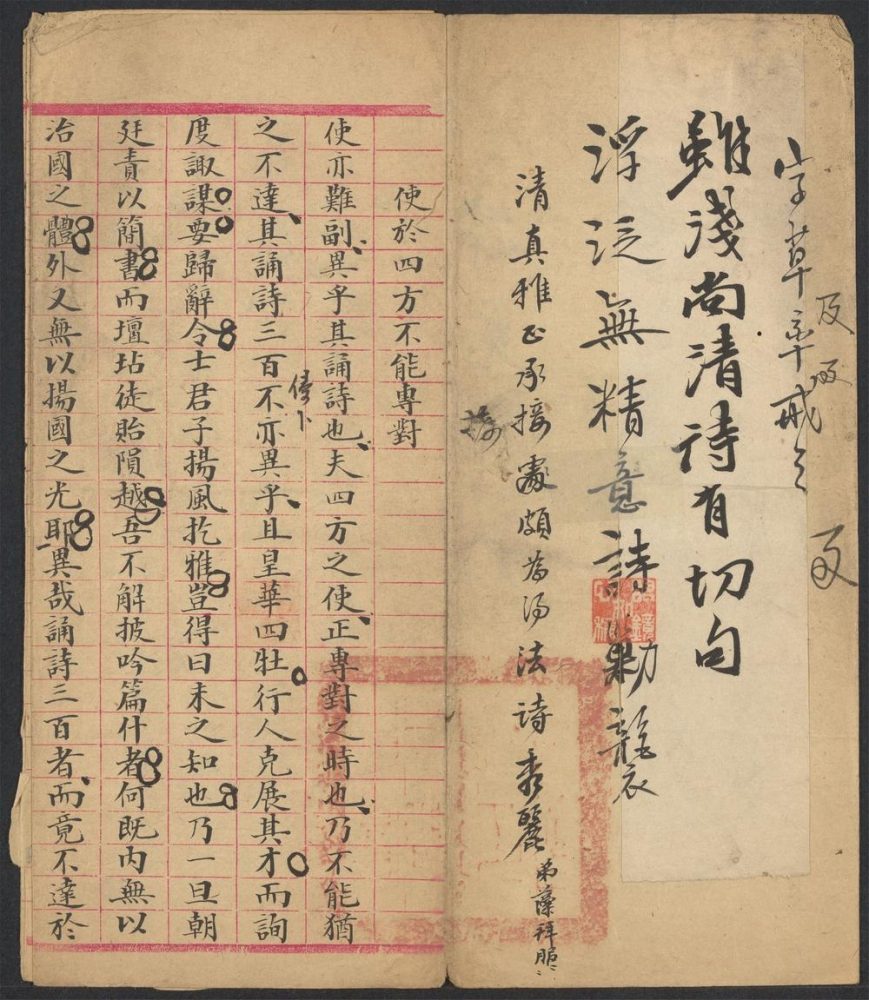 字草率戒之
及
雖淺尚清詩有切句
浮泛無精意詩勦襲
清真雅正承接處頗為得法詩秀麗
弟藻拜服
使於四方不能專對
使亦難副異乎其誦詩也夫四方之使正專對之時也乃不能猶
之不達其誦詩三百不亦異乎且皇華四牡行人克展其才而詢
度諏謀要歸辭令士君子揚風扢雅豈得曰未之知也乃一旦朝
廷責以簡書而壇坫徒貽隕越吾不解披吟篇什者何既內無以
治國之體外又無以揚國之光耶異哉誦詩三百者而竟不達於